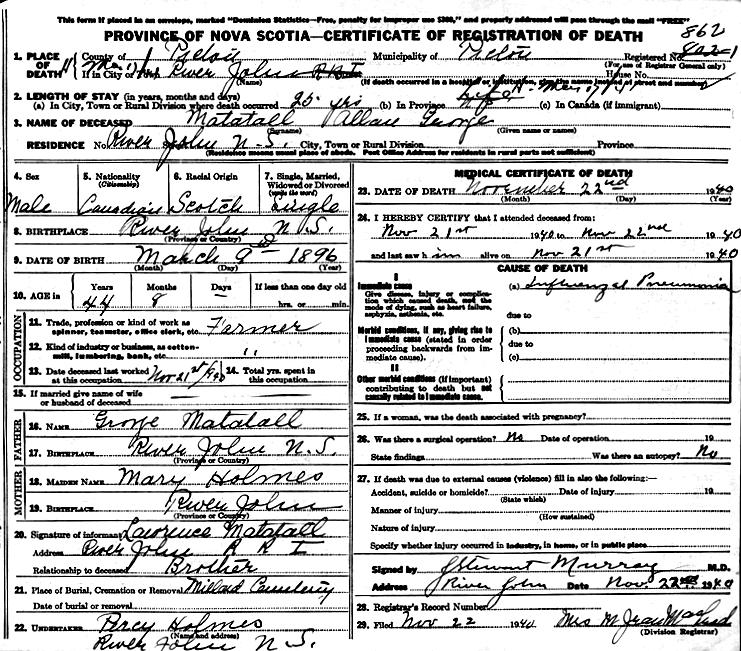 This form if placed in an envelope, marked "Dominion Statistics—Free, penalty for improper use $300," and properly addressed will pass through the mail "FREE"
PROVINCE OF NOVA SCOTIA—CERTIFICATE OF REGISTRATION OF DEATH
862
1. PLACE OF DEATH
County of Pictou
Municipality of Pictou
Registered No.
(For use of Registrar General only)
If in City, River John R R I
House No.
(Name) (If death occurred in a hospital or institution, give the name instead of street and number)
2. LENGTH OF STAY (in years, months and days)
(a) In City, Town or Rural Division where death occurred 25 yrs (b) In Province life (c) In Canada (if immigrant)
3. NAME OF DECEASED Matatall Allan George
(Surname) (Given name or names)
RESIDENCE No. River John N.S. City, Town or Rural Division Province
(Residence means usual place of abode. Post Office Address for residents in rural parts not sufficient)
4. Sex
Male
5. Nationality
(Citizenship)
Canadian
6. Racial Origin
Scotch
7. Single, Married, Widowed or Divorced
(write the word)
Single
8. BIRTHPLACE River John N.S.
(Province or Country)
9. DATE OF BIRTH March 9th 1896
(Month) (Day) (Year)
10. AGE in
Years Months Days If less than one day old
44 8 — hrs. or min.
OCCUPATION
11. Trade, profession or kind of work as spinner, teamster, office clerk, etc. Farmer
12. Kind of industry or business, as cotton-mill, lumbering, bank, etc. "
13. Date deceased last worked at this occupation Nov 21st 1940
14. Total yrs. spent in this occupation
15. If married give name of wife or husband of deceased
FATHER
16. NAME George Matatall
17. BIRTHPLACE River John N.S.
(Province or Country)
MOTHER
18. MAIDEN NAME Mary Holmes
19. BIRTHPLACE River John
(Province or Country)
20. Signature of informant Lawrence Matatall
Address River John R R I
Relationship to deceased Brother
21. Place of Burial, Cremation or Removal Millard Cemetery
Date of burial or removal
22. UNDERTAKER Percy Holmes
(Name and address)
River John N.S.
MEDICAL CERTIFICATE OF DEATH
23. DATE OF DEATH November 22nd 1940
(Month) (Day) (Year)
24. I HEREBY CERTIFY that I attended deceased from:
Nov 21st 1940 to Nov 22nd 1940
and last saw him alive on Nov 21st 1940
CAUSE OF DEATH
I
Immediate cause
Give disease, injury or complication which caused death, not the mode of dying, such as heart failure, asphyxia, asthenia, etc.
(a) Influenzal Pneumonia
due to
Morbid conditions, if any, giving rise to immediate cause (stated in order proceeding backwards from immediate cause).
(b)
due to
(c)
II
Other morbid conditions (if important) contributing to death but not causally related to immediate cause.
25. If a woman, was the death associated with pregnancy?
26. Was there a surgical operation? No Date of operation 19
State findings Was there an autopsy? No
27. If death was due to external causes (violence) fill in also the following:—
Accident, suicide or homicide? Date of injury 19
(State which)
Manner of injury
(How sustained)
Nature of injury
Specify whether injury occurred in industry, in home, or in public place
Signed by J Stewart Murray M.D.
Address River John Date Nov. 22nd 1940
28. Registrar's Record Number
29. Filed Nov 22 1940 Mrs M Jean MacLeod
(Division Registrar)